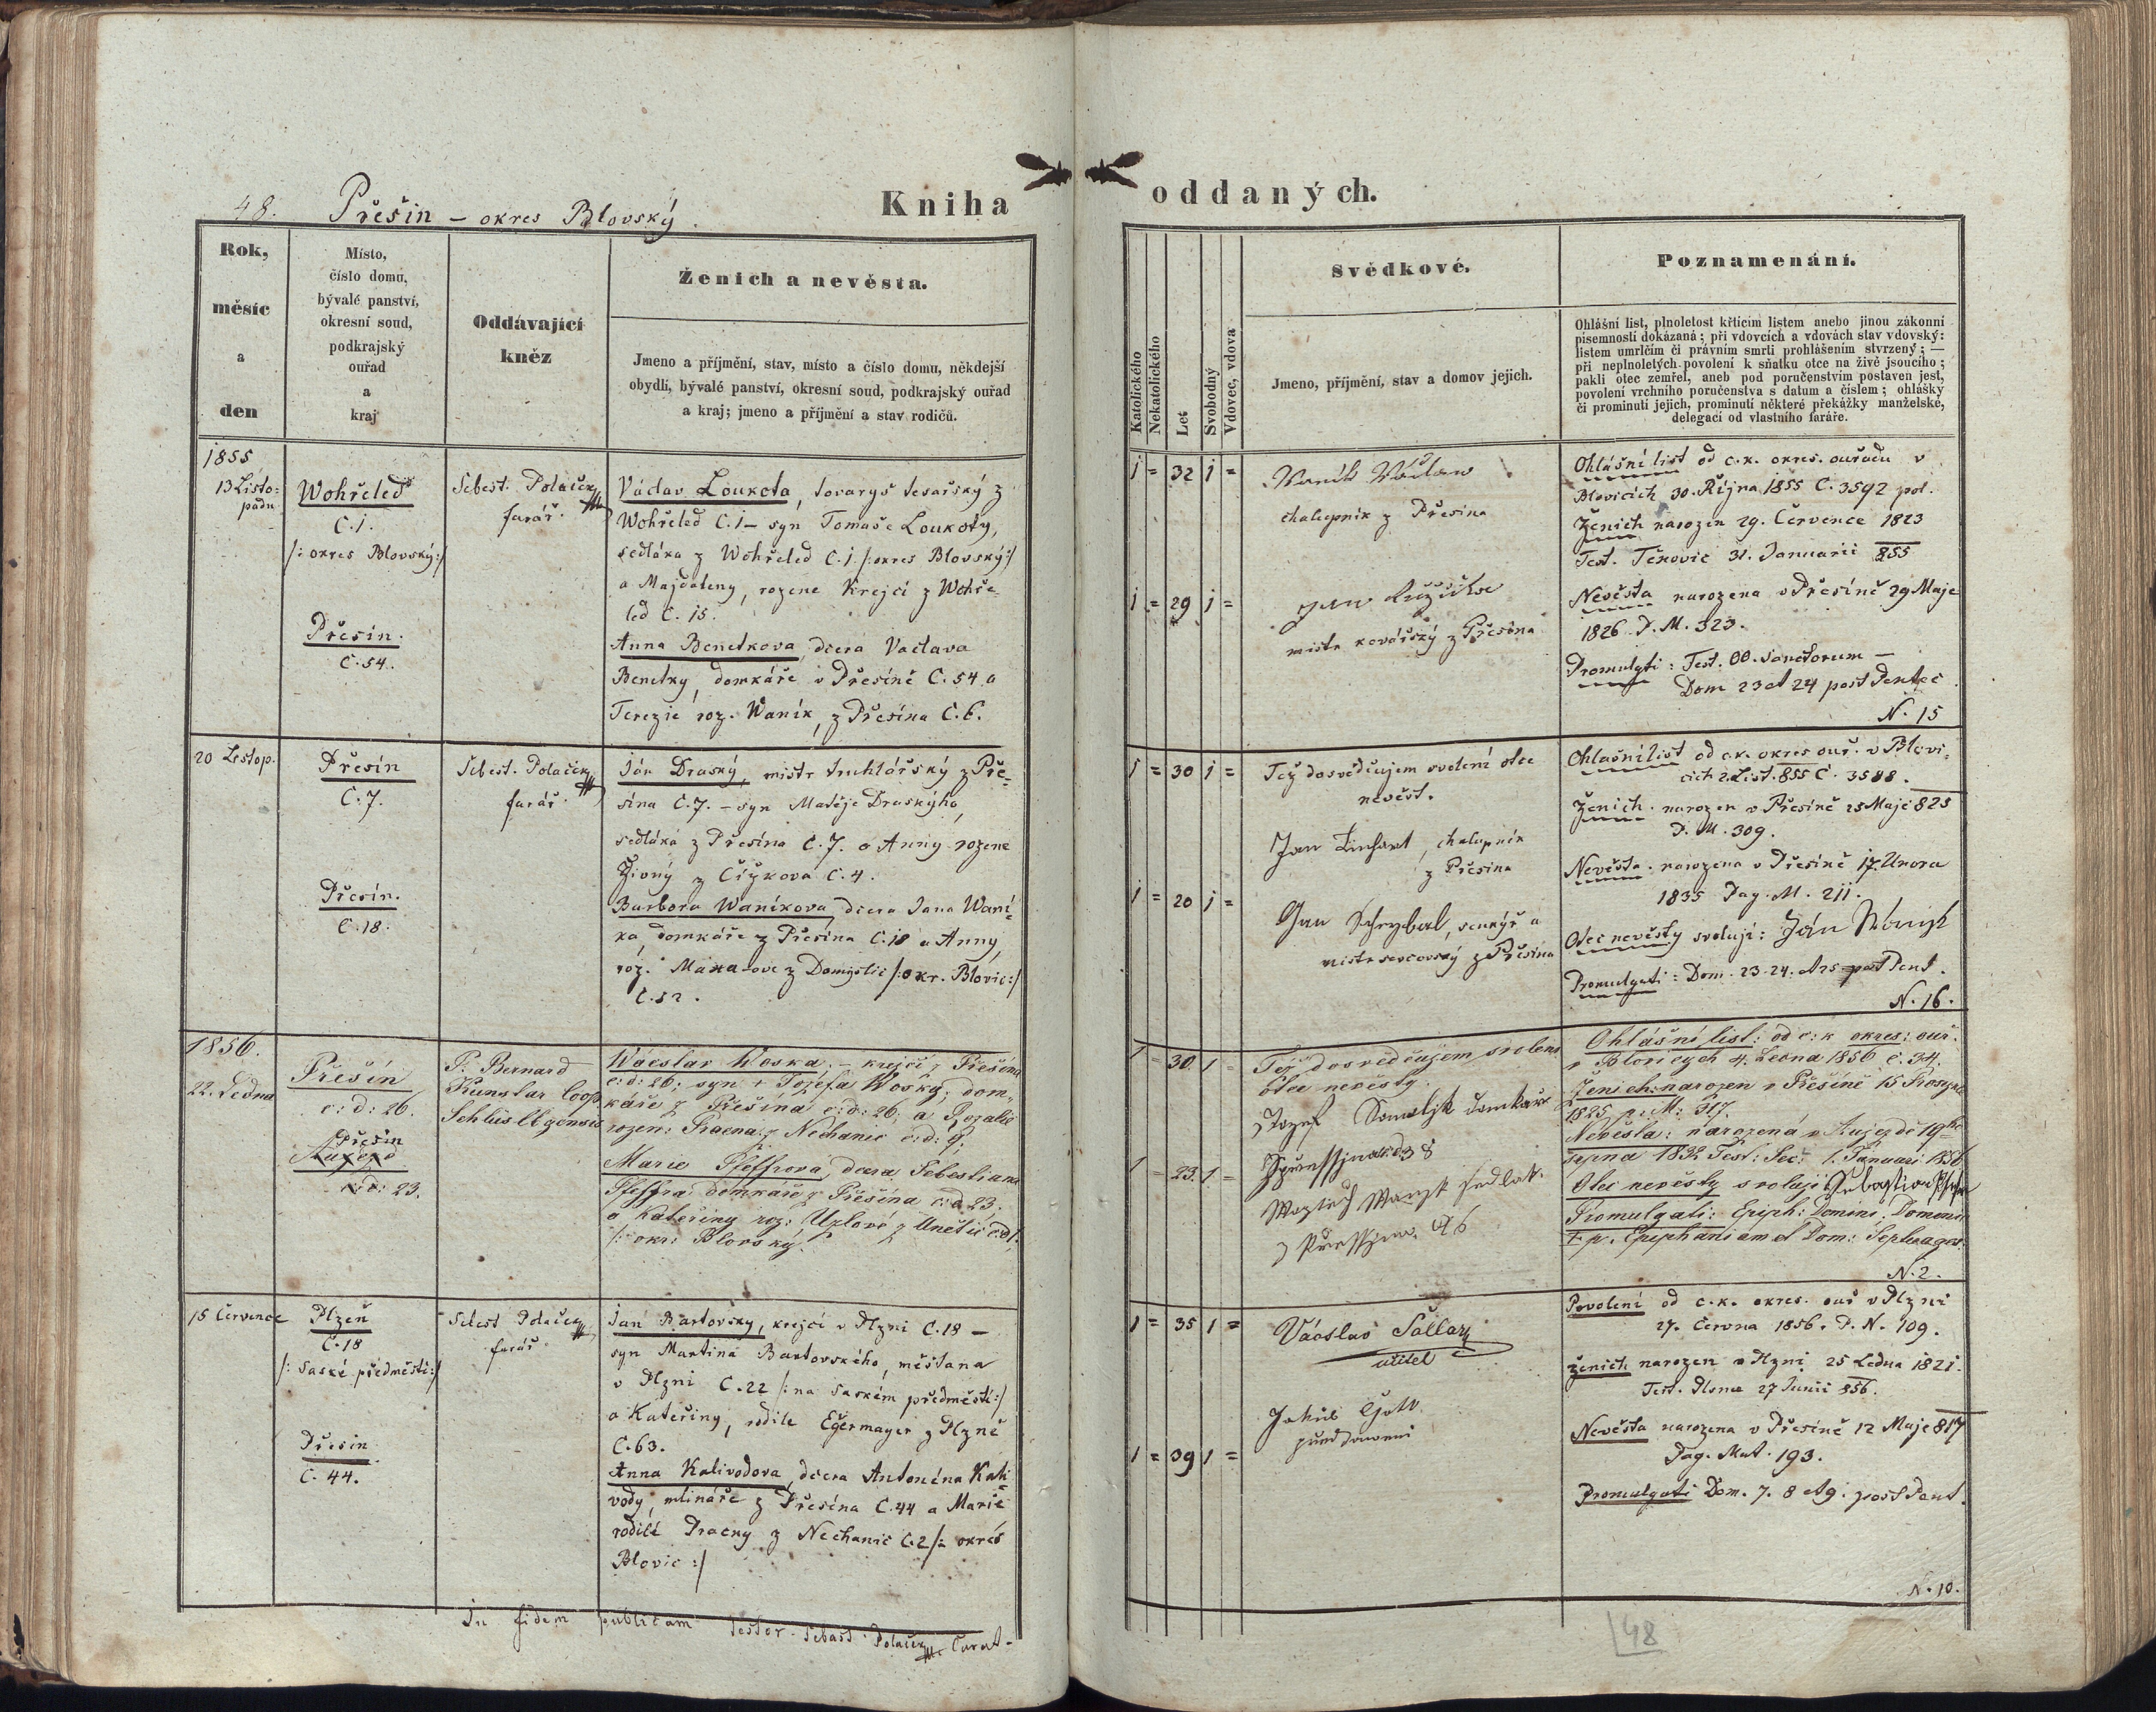 48. Přešin – okres Blovský.
Kniha oddaných.
Rok,
měsíc
a
den
Místo,
číslo domu,
bývalé panství,
okresní soud,
podkrajský
ouřad
a
kraj
Oddávající
kněz
Ženich a nevěsta.
Jmeno a příjmění, stav, místo a číslo domu, někdejší
obydlí, bývalé panství, okresní soud, podkrajský ouřad
a kraj; jmeno a příjmění a stav rodičů.
Katolického
Nekatolického
Let
Svobodný
Vdovec, vdova
Svědkové.
Jmeno, příjmění, stav a domov jejich.
Poznamenání.
Ohlášní list, plnoletost křticím listem anebo jinou zákonní
písemností dokázaná; při vdovcích a vdovách stav vdovský:
listem umrlčím či právním smrti prohlášením stvrzený; —
při neplnoletých povolení k sňatku otce na živě jsoucího;
pakli otec zemřel, aneb pod poručenstvím postaven jest,
povolení vrchního poručenstva s datum a číslem; ohlášky
či prominutí jejich, prominutí některé překážky manželské,
delegací od vlastního faráře.
1855
13 Listo=
padu
Wohřeled
C. 1.
/: okres Blovský :/
Přesin.
C. 54.
Sebest. Polaček
farář.
Václav Loukota, tovaryš tesařský z
Wohřeled C. 1 – syn Tomaše Loukoty,
sedláka z Wohřeled C. 1 /: okres Blovský :/
a Majdaleny, rozene Krejčí z Wohře-
led C. 15.
Anna Benetkova, dcera Vaclava
Benetky, domkáře v Přesíně C. 54 a
Terezie roz. Waník, z Přesína C. 6.
1 = 32 1 =
1 = 29 1 =
Waník Václaw
chalupník z Přesina
Jan Růžička
mistr kovářský z Přesína
Ohlášní list od c. k. okres. ouřadu v
Blovicích 30. Října 1855 C. 3592 pol.
Ženich narozen 29. Července 1823
Test. Těnovic 31. Januarii 855
Nevěsta narozena v Přesíně 29 Maje
1826 P. M. 323.
Promulgti: Fest. OO. Sanctorum –
Dom 23 et 24 post Pentec
N. 15
20 Listop.
Přesín
C. 7.
Přesín.
C. 18.
Sebest. Polaček
farář.
Ján Draský, mistr truhlářský z Pře-
sína C. 7. – syn Matěje Draskýho,
sedláka z Přesína C. 7. a Anny rozene
Živný z Čížkova C. 4.
Barbora Waníkova, dcera Jana Waní-
ka, domkáře z Přesína C. 18 a Anny,
roz. Maxa ove z Domyslic /: okr. Blovic :/
C. 52.
1 = 30 1 =
1 = 20 1 =
Též dosvědčujem svolení otce
nevěst.
Jan Linhart, chalupník
z Přesina
Jan Schrybal, senkýř a
mistr sevcovský z Přesína
Ohlašní list od c. k. okres ouř. v Blovi-
cich 2. List. 855 C. 3588.
Ženich. narozen v Přesíně 25 Maje 825
P. M. 309.
Nevěsta. narozena v Přesíně 17. Unora
1835 Pag. M. 211.
Otec nevěsty svoluji: Ján Wánijk
Promulgati: Dom. 23. 24. et 25 post Pent.
N. 16.
1856.
22. Ledna
Přešín
c: d: 26.
Přešin
Aujezd
c: d: 23.
P. Bernard
Kunstar Coop
Schlüsslbgensis
Wáceslav Woska – krejčí z Přešína
c: d: 26; syn + Jozefa Wosky, dom-
káře z Přešína c: d: 26; a Rozalie
rozen: Pracna z Nechanic c: d: 9;
Marie Pfeffrová, dcera Sebestiana
Pfeffra domkáře z Přešína c: d 23;
a Kateřiny roz: Uzlové z Unětic c: d 1.
/: okr: Blovský.
1 = 30 1 =
1 = 23. 1 =
Též dosvědčujem svolení
otce nevěsty.
Jozef Samolijk domkař
z Přessjna č 38
Wogtěch Wanjk sedlak
z Przessjna č 6
Ohlášní list: od c: k okres: ouř.
v Blovicých 4. Ledna 1856 č. 34.
Ženich: narozen v Přešíně 15 Prosynce
1825 p: M: 317.
Nevěsta: narozená v Aujezdě 19ho
srpna 1832 Test: Sec: 1. Januari 1856
Otec nevěsty svoluji Sebastian Pfefr
Promulgati: Epiph: Domini, Domeni
I. p. Epiphaniam et Dom: Septuages.
N. 2.
15 Července
Plzeň
C. 18
/: Saské předměstí :/
Přesin
C. 44.
Sebest Polaček
farář
Ján Bartovsky, krejčí v Plzni C. 18 –
syn Martina Bartovského, měštana
v Plzni C. 22 /: na saském předměstí :/
a Kateřiny, rodile Egermayer z Plzně
C. 63.
Anna Kalivodova, dcera Antonína Kali-
vody, mlináře z Přesína C. 44 a Marie
rodilé Pracny z Nechanic C. 2 /: okres
Blovic :/
1 = 35 1 =
1 = 39 1 =
Václav Sallarz
učitel
Jakub
Povolení od c. k. okres. ouř v Plzni
27. Června 1856. P. N. 109.
ženich narozen v Plzni 25 Ledna 1821.
Test. Plsnae 27 Junii 856.
Nevěsta narozena v Přesíně 12 Maje 817
Pag. Mat. 193.
Promulgati Dom. 7. 8 et 9. post Pent.
N. 10.
In fidem publicam testor. Sebast. Polaček Curat.
48